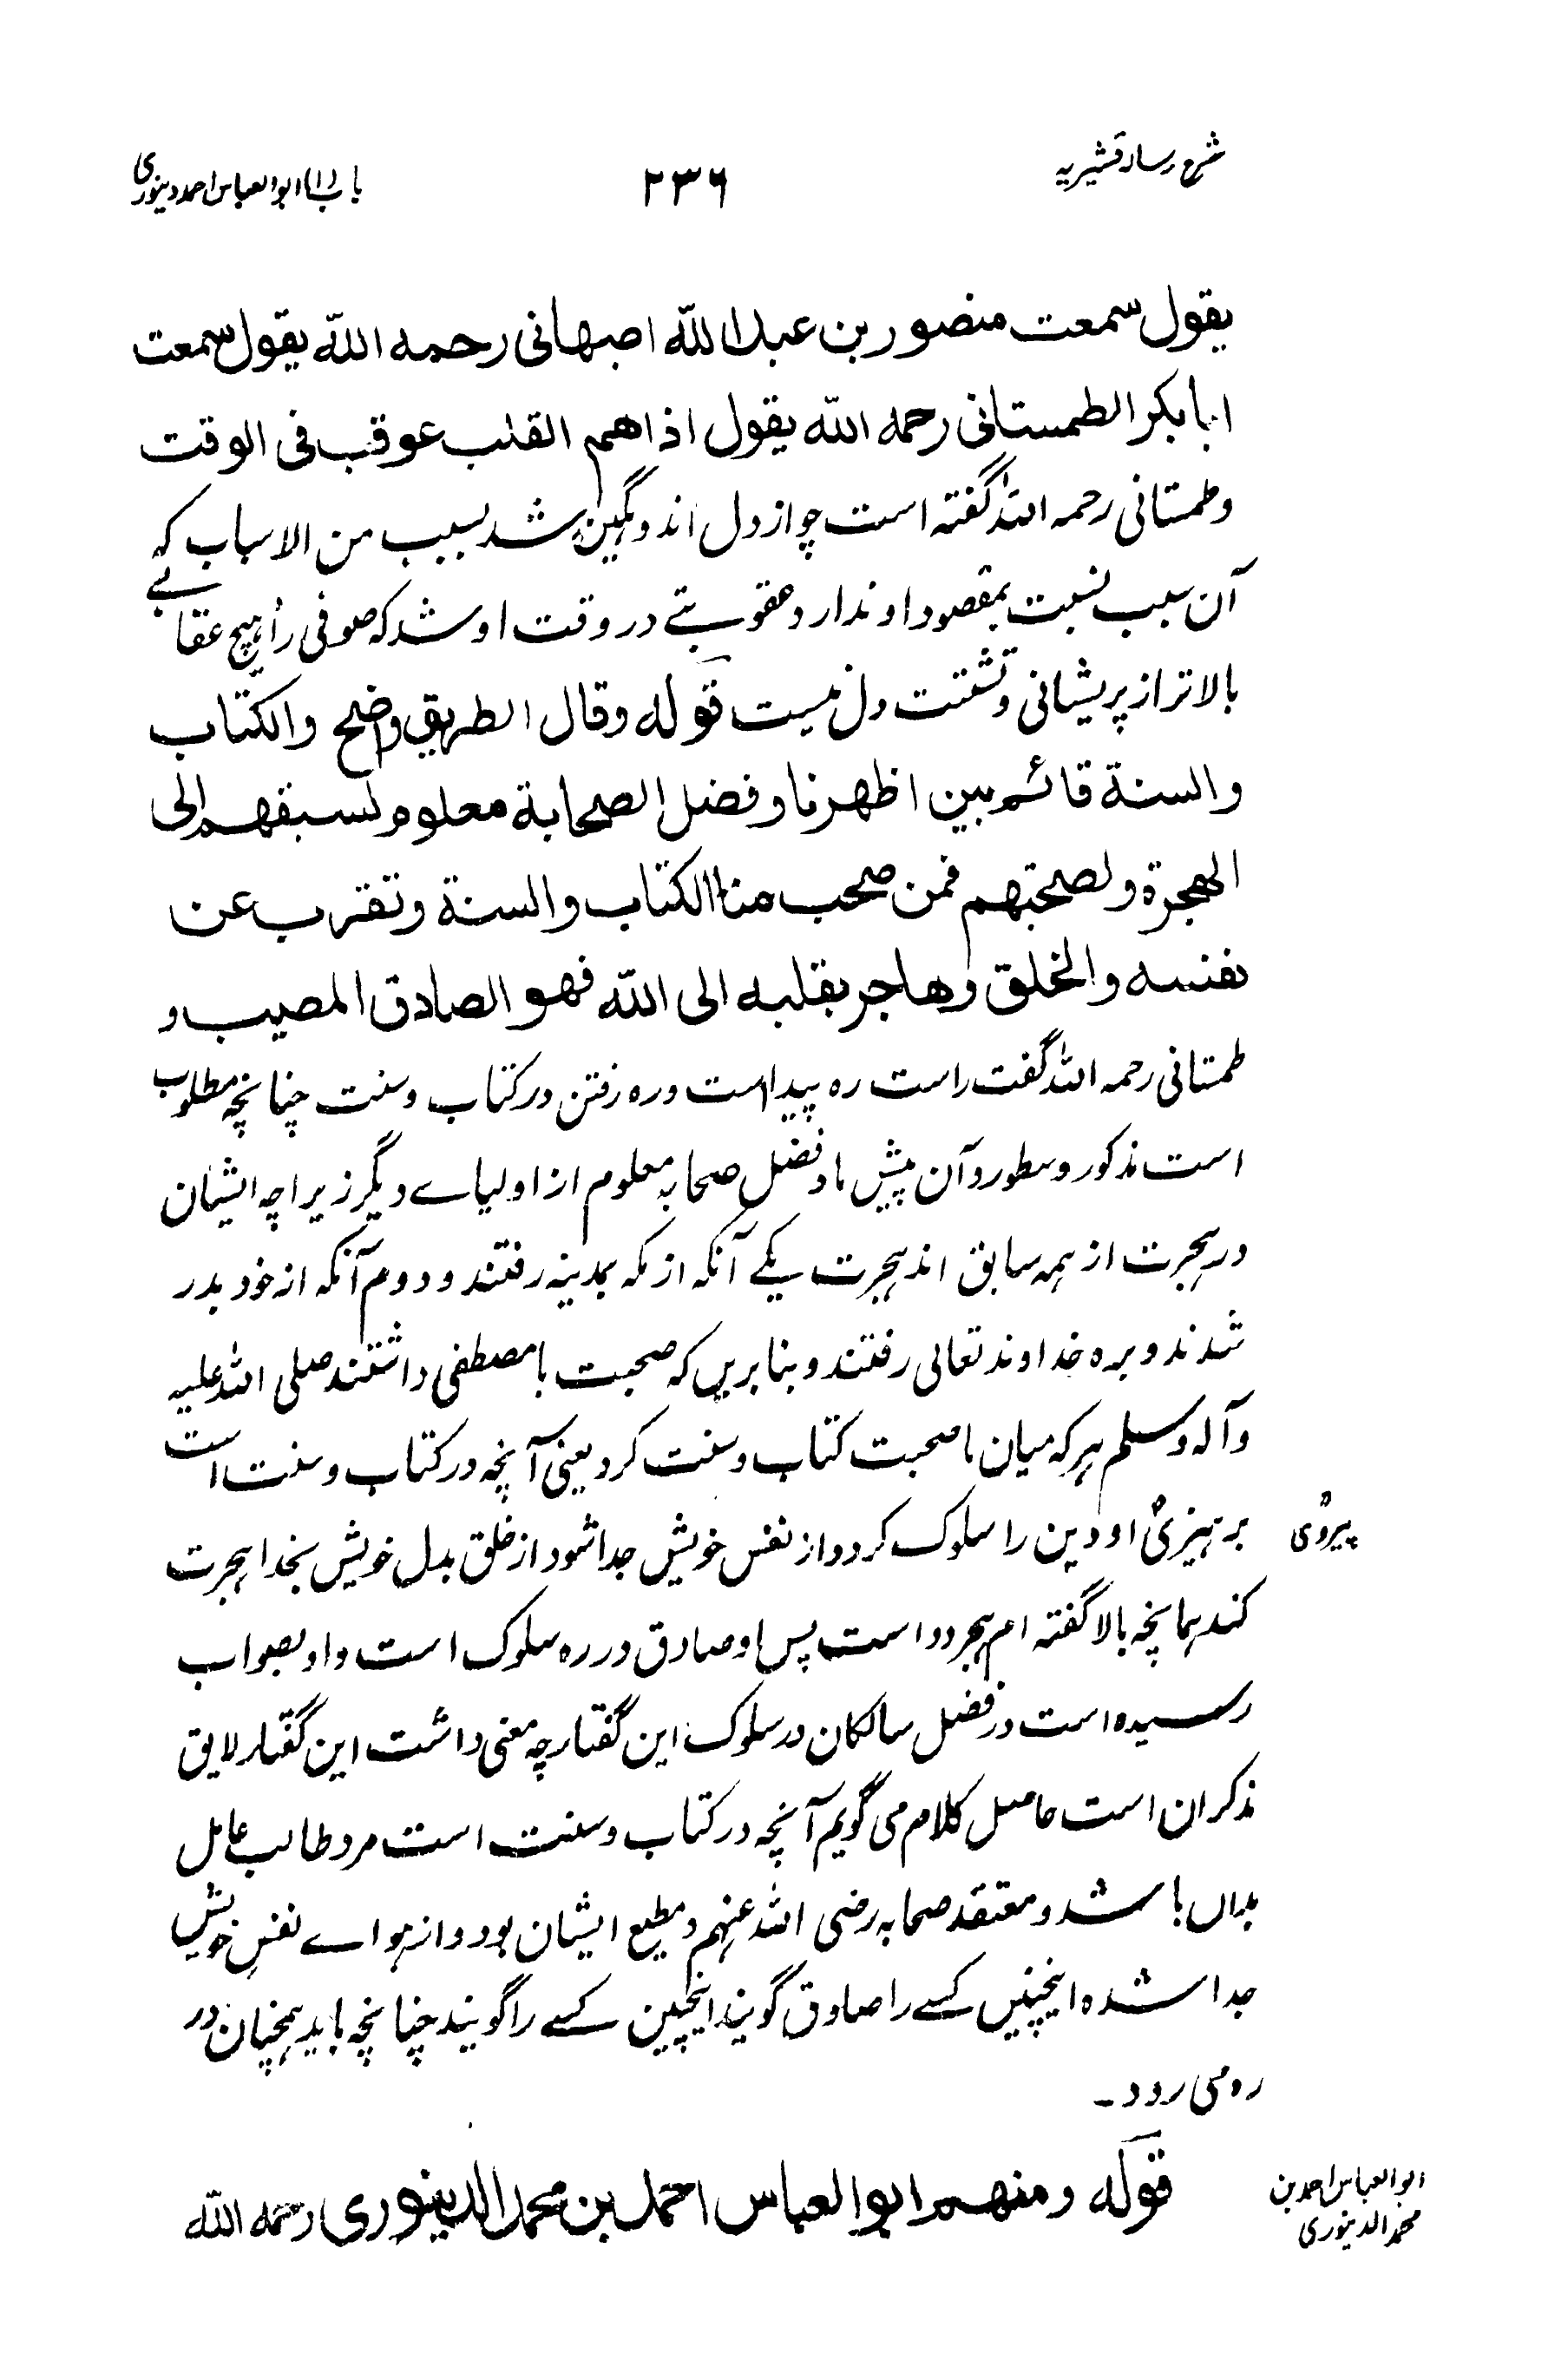 شرح رسالہ قشیریہ
۲۳۶
باب (۱) ابوالعباس احمد دینوری
یقول سمعت منصور بن عبد اللّٰه اصبهانی رحمه اللّٰه یقول سمعت
ابا بکر الطمستانی رحمه اللّٰه یقول اذا هم القلب عوقب فی الوقت
و طمستانی رحمه اللّٰه گفته است چو از دل اندوهگین شد بسبب من الاسباب که
آن سبب نسبت بمقصود او ندارد عقوبتے در وقت او شد که صوفی را هیچ عقابے
بالاتر از پریشانی و تشتت دل نیست قوله وقال الطریق واضح والکتاب
والسنة قائم بین اظهرنا وفضل الصحابة معلوم لسبقهم الی
الهجرة ولصحبتهم فمن صحب منا الکتاب والسنة وتقرب عن
نفسه والخلق وهاجر بقلبه الی اللّٰه فهو الصادق المصیب و
طمستانی رحمه اللّٰه گفت راست ره پیداست و ره رفتن در کتاب و سنت چنانچه مطلوب
است مذکور و مسطور و آن پیش ما و فضل صحابه معلوم از اولیاے دیگر زیرا چه ایشان
در هجرت از همه سابق اند هجرت یکے آنکه از مکه بمدینه رفتند و دوم آنکه از خود بدر
شدند و بره خداوند تعالی رفتند و بنا بریں که صحبت با مصطفی داشتند صلی اللّٰه علیه
و آله وسلم هر که میان ما صحبت کتاب و سنت کرد یعنی آنچه در کتاب و سنت است
بر هیزئ او دین را سلوک کرد و از نفس خویش جدا شود از خلق بدل خویش بخدا هجرت
پیروی
کند همانچه بالا گفته ام هجر دو است پس او صادق در ره سلوک است و او بصواب
رسیده است در فضل سالکان در سلوک این گفتار چه معنی داشت این گفتار لایق
مذکران است حاصل کلام می گویم آنچه در کتاب و سنت است مرد طالب عامل
بداں باشد و معتقد صحابه رضی اللّٰه عنهم و مطیع ایشان بود و از هواے نفس خویش
جدا شده اینچنیں کسے را صادق گویند اینچنین کسے را گویند چنانچه باید همچنان در
ره می رود ۔
قوله ومنهم ابو العباس احمد بن محمد الدینوری رحمه اللّٰه
ابو العباس احمد بن
محمد الدینوری